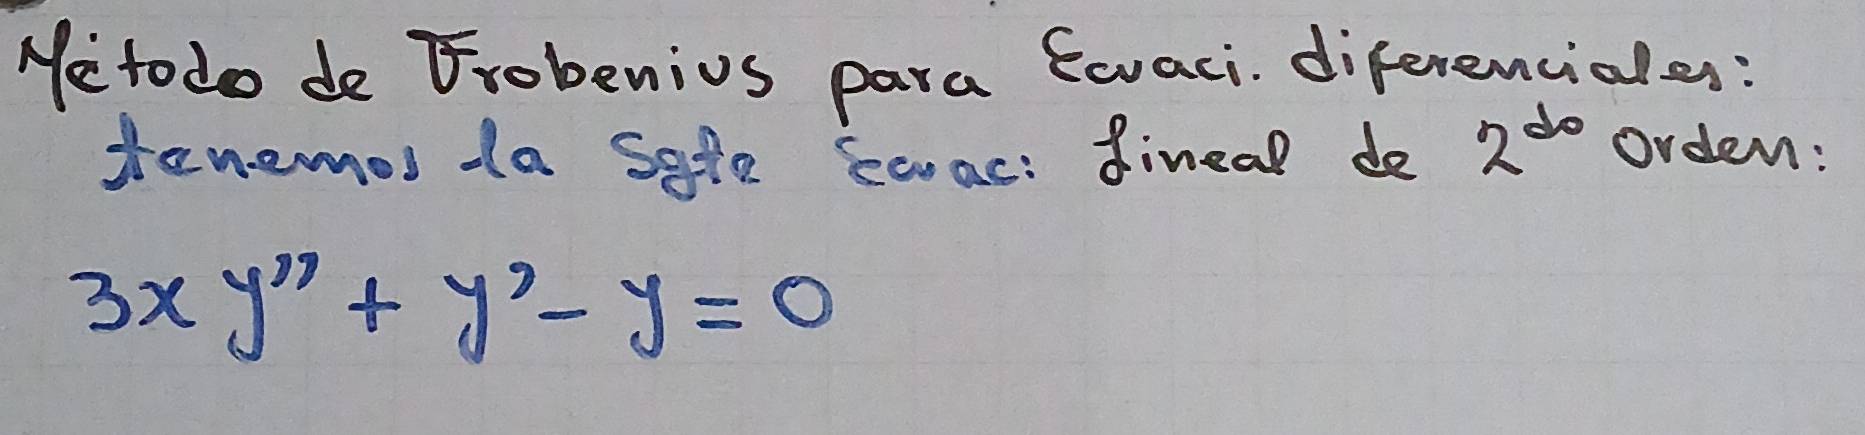 Método de Frobenius para Ecuaci. diferenciales:
tenemos la Sgte Ecuac: Lineal de 2do Orden:
3x y'' + y' - y = 0